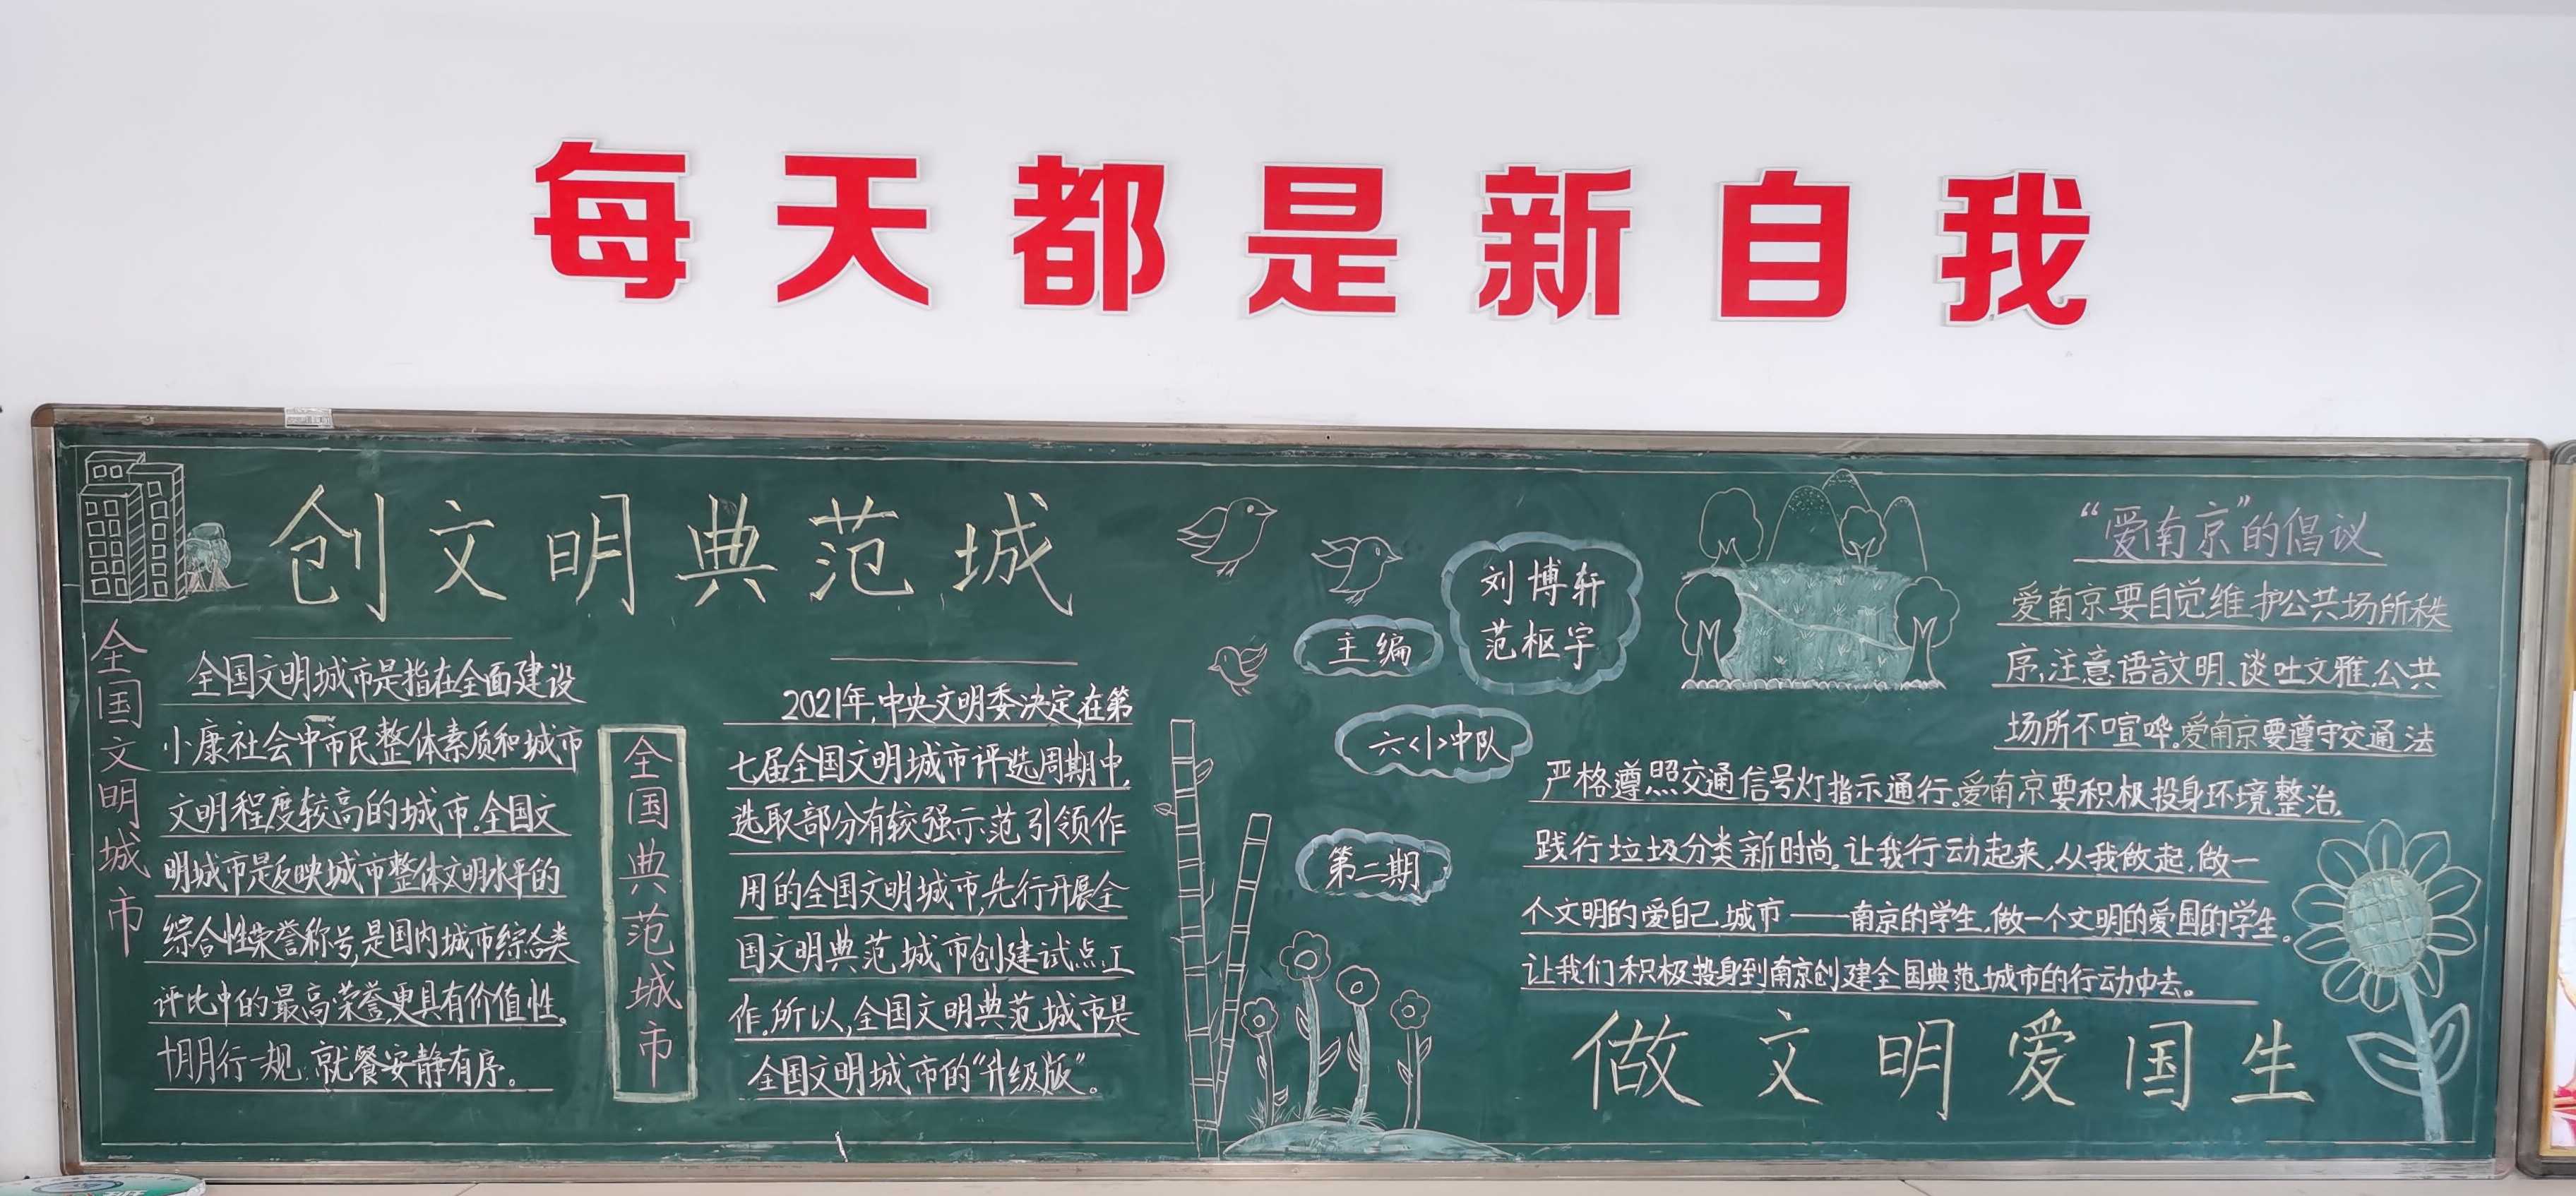 每天都是新自我
创文明典范城
全国文明城市
全国文明城市是指在全面建设
小康社会中市民整体素质和城市
文明程度较高的城市.全国文
明城市是反映城市整体文明水平的
综合性荣誉称号,是国内城市综合类
评比中的最高荣誉,更具有价值性。
行一规.就餐安静有序。
全国典范城市
2021年,中央文明委决定,在第
七届全国文明城市评选周期中,
选取部分有较强示范引领作
用的全国文明城市,先行开展全
国文明典范城市创建试点工
作.所以,全国文明典范城市是
全国文明城市的“升级版”。
主编
刘博轩
范枢宇
六<1>中队
第二期
“爱南京”的倡议
爱南京要自觉维护公共场所秩
序,注意语言文明、谈吐文雅.公共
场所不喧哗.爱南京要遵守交通法
严格遵照交通信号灯指示通行.爱南京要积极投身环境整治,
践行垃圾分类新时尚.让我行动起来,从我做起,做一
个文明的爱自己城市——南京的学生,做一个文明的爱国的学生。
让我们积极投身到南京创建全国典范城市的行动中去。
做文明爱国生